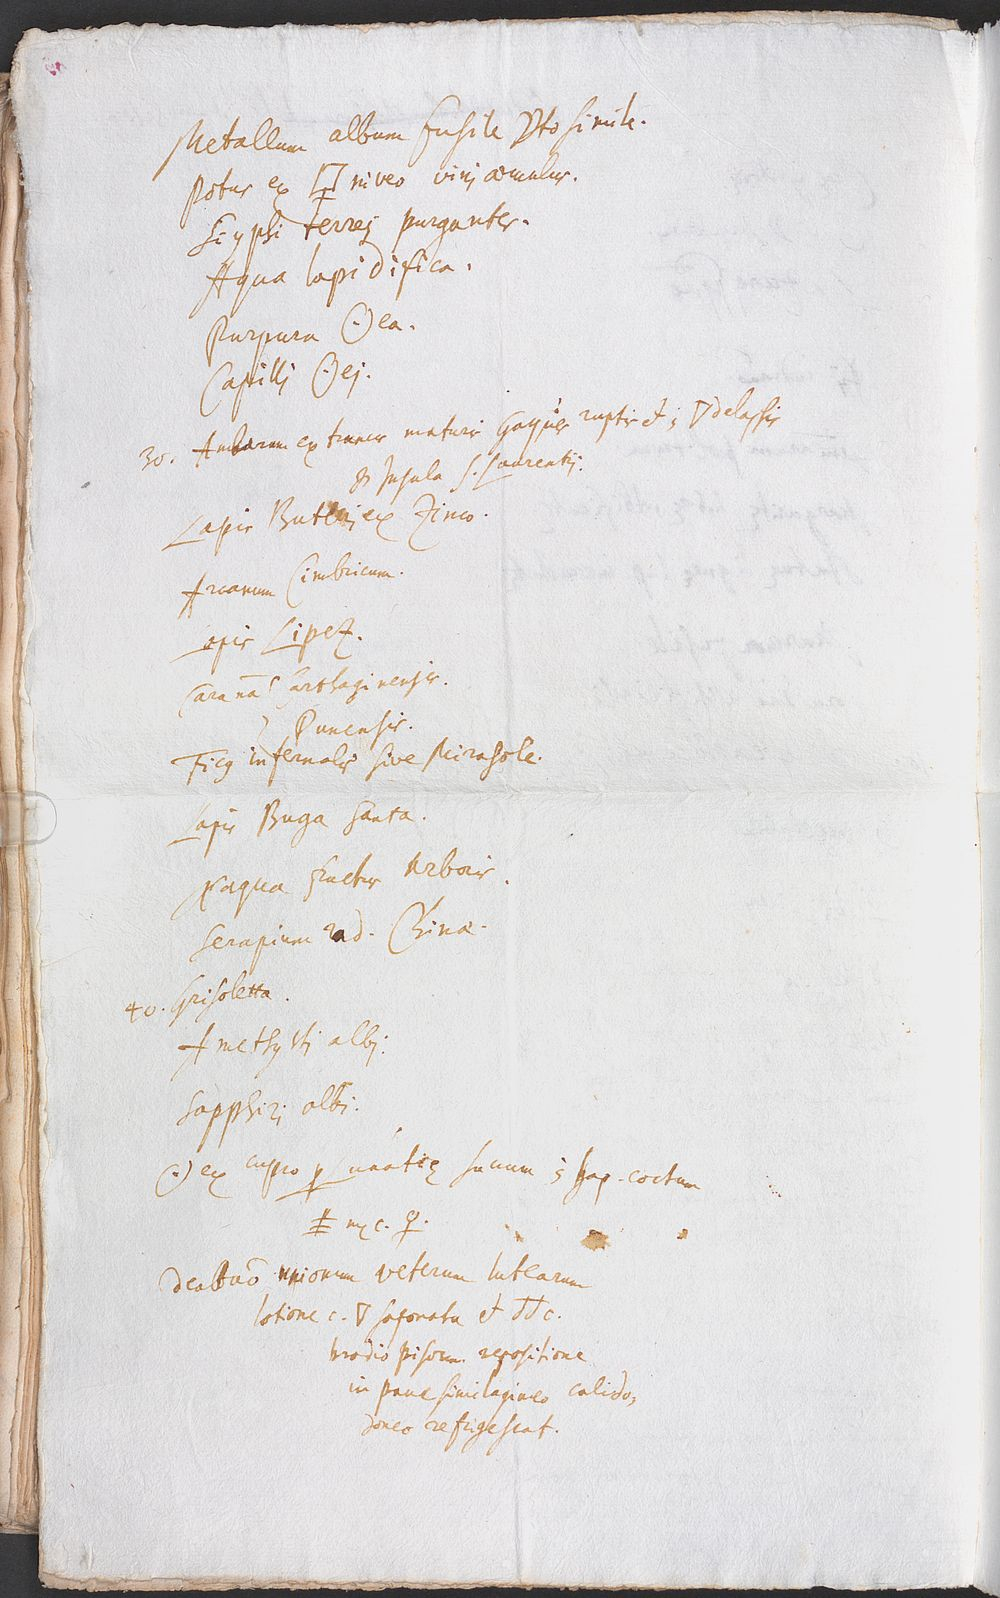 Metallum album fusile ☽to simile.
Potus ex niveo vini æmulus.
Scyphi terrei purgantes.
Aqua lapidifica.
Purpura ☉ea.
Capilli ☉ei.
30. Ambarum ex truncis maturis ruptis et ▽ delapsis
Insula S. Laurentij.
Lapis Butleri ex Zinco.
Arcanum Cimbricum.
Lapis Lipez.
Caranna Carthaginensis.
Punensis.
Ficus infernalis sive Mirasole.
Lapis Buga santa.
Xaqua fructus Arboris.
Serapium rad. Chinæ.
40. Grisoletta.
Amethysti albi.
Sapphiri albi.
☉ ex cupro p Lunatiæ succum coctum
c. ☿.
Dealbatio unionum veterum lutearum
lotione c. ▽ saponata et c.
brodio pisorum repositione
in pane similagineo calido,
donec refrigescat.